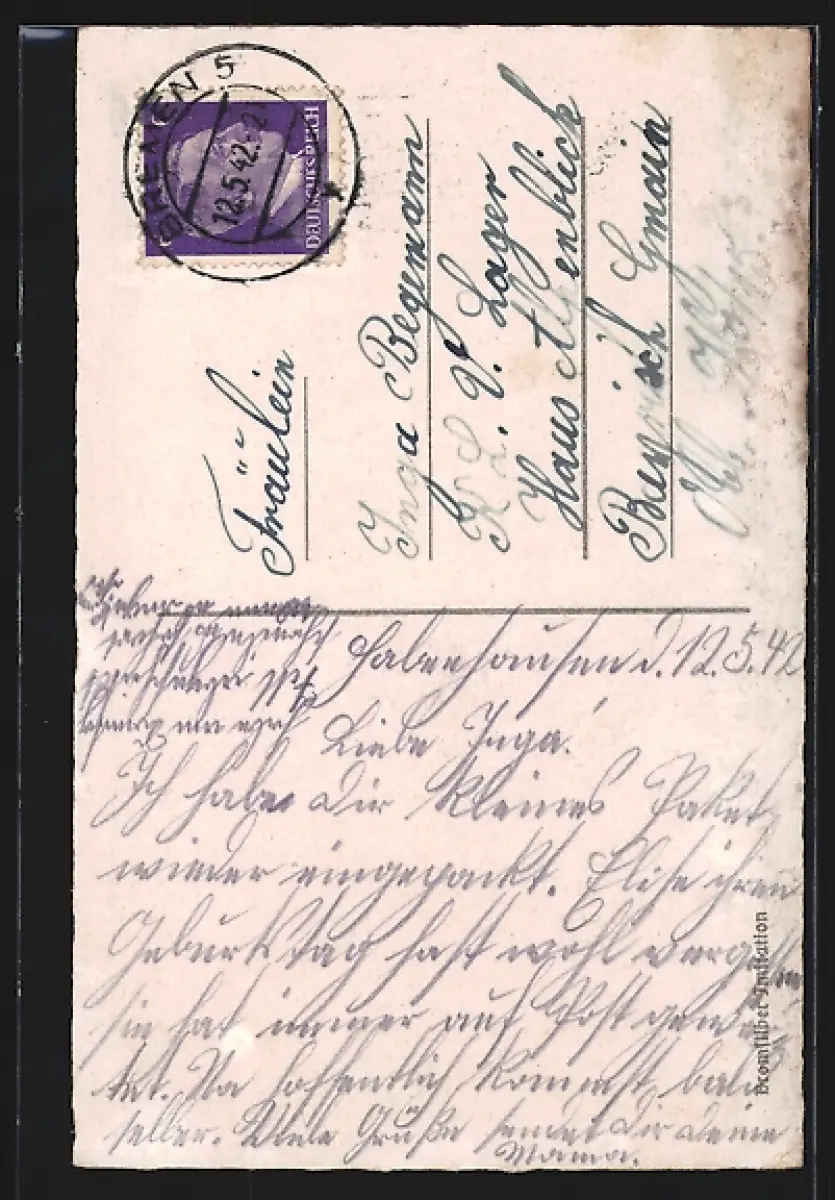 BREMEN 5
12.5.42.-21
DEUTSCHES REICH
Fräulein
Inga Begemann
K L. V. Lager
Haus Alpenblick
Bayrisch Gmain
Habenhausen d. 12.5.42
Liebe Inga!
Ich habe dir kleines Paket
wieder eingepackt. Elise ihren
Geburtstag hast wohl vergessen
sie hat immer auf Post gewar
tet. Na hoffentlich kommst bald
selber. Viele Grüße sendet dir deine
Mama.
Bromsilber-Imitation